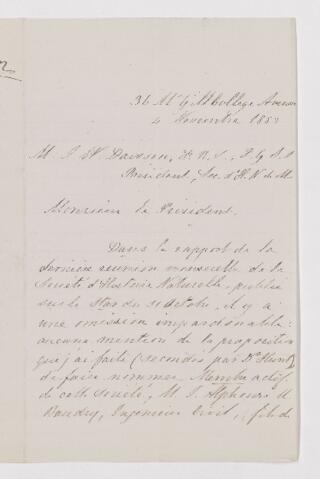 36 McGill College Avenue
4 Novembre 185
M. J. W. Dawson, F. R. S., F. G. S.
Président, Soc. d'H. N. de M.
Monsieur le Président.
Dans le rapport de la
dernière réunion mensuelle de la
Société d'Histoire Naturelle, publié
sur le Star du 31 octobre, il y a
une omission impardonnable:
aucune mention de la proposition
que j'ai faite (secondée par Dr
de faire nommer Membre actif
de cette société, M. J. Alphonse U.
Baudry, Ingénieur Civil, fils de